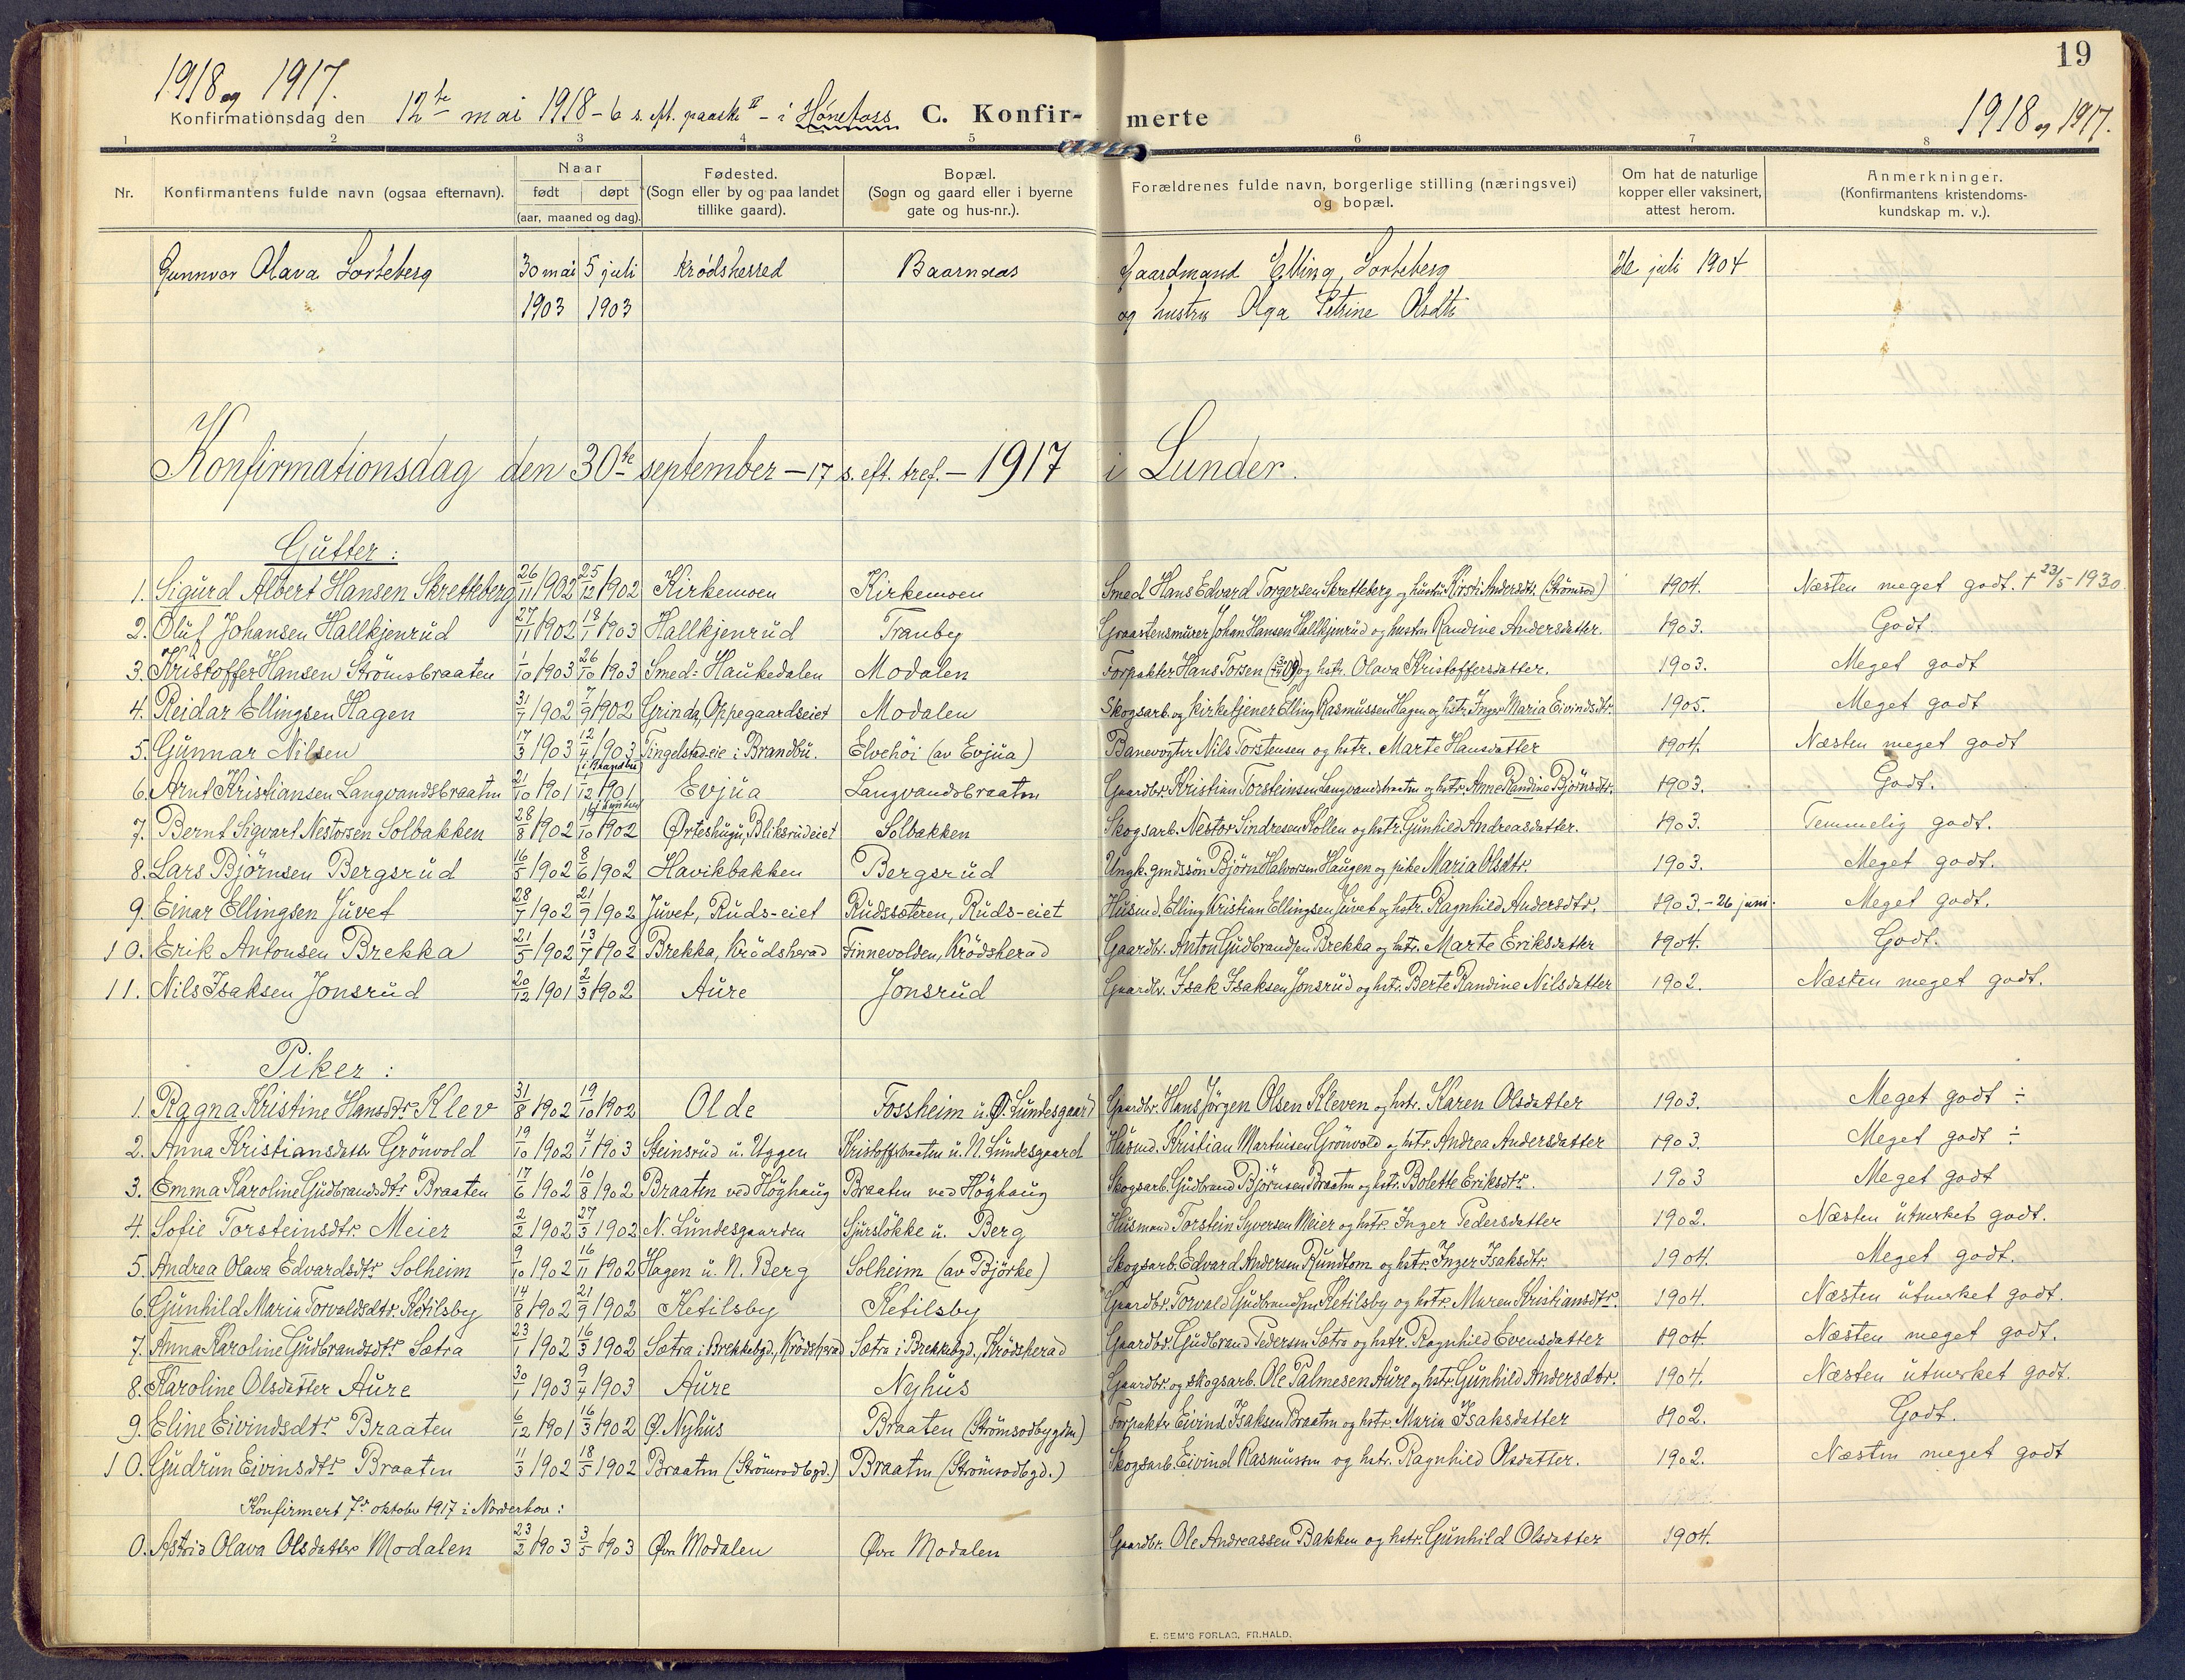 19
1918 og 1917.
1918 og 1917.
Konfirmationsdag den 12te mai 1918 - 6 s. eft. paaske II - i Hønefoss C. Konfir- merte
1 2 3 4 5 6 7 8
Nr. Konfirmantens fulde navn (ogsaa efternavn). Naar født døpt (aar, maaned og dag). Fødested. (Sogn eller by og paa landet tillike gaard). Bopæl. (Sogn og gaard eller i byerne gate og hus-nr.). Forældrenes fulde navn, borgerlige stilling (næringsvei) og bopæl. Om hat de naturlige kopper eller vaksinert, attest herom. Anmerkninger. (Konfirmantens kristendoms-kundskap m. v.).
Gunnvor Olava Sorteberg 30 mai 5 juli Krødsherred Baarnaas Gaardmand Elling Sorteberg juli 1904
1903 1903 og hustru Olga Petrine Olsdtr
Konfirmationsdag den 30te september - 17 s. eft. tref. - 1917 i Lunder.
Gutter:
1. Sigurd Albert Hansen Skretteberg 26/11 1902 25/12 1902 Kirkemoen Kirkemoen Smed Hans Edvard Torgersen Skretteberg og hustru Kirsti Andersdtr. (Strömsod) 1904. Næsten meget godt. † 23/5-1930
2. Oluf Johansen Hallkjenrud 27/11 1902 18/1 1903 Hallkjenrud Tranby Graastensmurer Johan Hansen Hallkjenrud og hustru Randine Andersdatter. 1903. Godt.
3. Kristoffer Hansen Strömsbraaten 1/10 1903 26/10 1903 Smed: Haukedalen Modalen Forpakter Hans Torsen og hstr. Olava Kristoffersdatter. 1903. Meget godt
4. Reidar Ellingsen Hagen 31/7 1902 7/9 1902 Grinda, Oppegaardseiet Modalen Skogsarb. og kirketjener Elling Rasmussen Hagen og hstr. Inger Maria Eivindsdtr. 1905. Meget godt
5. Gunnar Nilsen 17/3 1903 12/4 1903 i Brandbu Tingelstad-eie i Brandbu. Elvehöi (av Evjua) Banevogter Nils Torstensen og hstr. Marte Hansdatter 1904. Næsten meget godt
6. Arnt Kristiansen Langvandsbraaten 21/10 1901 1/12 1901 Evjua Langvandsbraaten Gaardbr. Kristian Torsteinsen Langvandsbraaten og hstr. Anne Randine Björnsdtr. 1903. Godt.
7. Bernt Sigvart Nestorsen Solbakken 28/8 1902 19/10 1902 Ørteshugu, Bliksrudeiet Solbakken Skogsarb. Nestor Sindresen Kollen og hstr. Gunhild Andreasdatter. 1903. Temmelig godt.
8. Lars Björnsen Bergsrud 16/5 1902 8/6 1902 Havikbakken Bergsrud Ungk. gmdssön Björn Halvorsen Haugen og pike Maria Olsdtr. 1903. Meget godt.
9. Einar Ellingsen Juvet 28/7 1902 21/9 1902 Juvet, Ruds-eiet Rudssæteren, Ruds-eiet Husmd. Elling Kristian Ellingsen Juvet og hstr. Ragnhild Andersdtr. 1903.-26 juni. Meget godt.
10. Erik Antonsen Brekka 21/5 1902 13/7 1902 Brekka, Krödsherad Finnevolden, Krödsherad Gaardbr. Anton Gudbrandsen Brekka og hstr. Marte Eriksdatter 1904. Godt.
11. Nils Isaksen Jonsrud 20/12 1901 2/3 1902 Aure Jonsrud Gaardbr. Isak Isaksen Jonsrud og hstr. Berte Randine Nilsdatter 1902. Næsten meget godt.
Piker:
1. Ragna Kristine Hansdtr. Klev 31/8 1902 19/10 1902 Olde Fossheim u. Ø. Lundesgaard Gaardbr. Hans Jörgen Olsen Kleven og hstr. Karen Olsdatter 1903. Meget godt ÷
2. Anna Kristiansdatter Grönvold 19/10 1902 4/1 1903 Steinsrud u. Uggen Kristoffbraaten u. N. Lundesgaard Husmd. Kristian Martinsen Grönvold og hstr. Andrea Andersdatter 1903. Meget godt ÷
3. Emma Karoline Gudbrandsdtr. Braaten 17/6 1902 10/8 1902 Braaten ved Höghaug Braaten ved Höghaug Skogsarb. Gudbrand Björnsen Braaten og hstr. Bolette Eriksdtr. 1903 Meget godt
4. Sofie Torsteinsdtr. Meier 2/2 1902 27/3 1902 N. Lundesgaarden Sjurslökke u. Berg Husmand Torstein Syversen Meier og hstr. Inger Pedersdatter 1902. Næsten utmerket godt.
5. Andrea Olava Edvardsdtr. Solheim 9/10 1902 16/11 1902 Hagen u. N. Berg Solheim (av Björke) Skogsarb. Edvard Andersen Rundtom og hstr. Inger Isaksdtr. 1904. Meget godt.
6. Gunhild Maria Torvaldsdtr. Ketilsby 14/8 1902 21/9 1902 Ketilsby Ketilsby Gaardbr. Torvald Gudbrandsen Ketilsby og hstr. Maren Kristiansdtr. 1904. Næsten utmerket godt.
7. Anna Karoline Gudbrandsdtr. Sætra 23/1 1902 16/3 1902 Sætra i Brekkebyd., Krödsherad Sætra i Brekkebyd., Krödsherad Gaardbr. Gudbrand Pedersen Sætra og hstr. Ragnhild Evensdatter 1904. Næsten meget godt.
8. Karoline Olsdatter Aure 30/1 1903 9/4 1903 Aure Nyhus Gaardbr. og skogsarb. Ole Palmesen Aure og hstr. Gunhild Andersdtr. 1904. Næsten utmerket godt.
9. Eline Eivindsdtr. Braaten 6/12 1901 16/3 1902 Ø. Nyhus Braaten (Strömsodbygden) Forpakter Eivind Isaksen Braaten og hstr. Maria Isaksdatter 1902. Godt.
10. Gudrun Eivinsdtr. Braaten 11/3 1902 18/5 1902 Braaten (Strömsodbgd.) Braaten (Strömsodbgd.) Skogsarb. Eivind Rasmussen og hstr. Ragnhild Olsdatter. 1902. Næsten meget godt
Konfirmert 7de oktober 1917 i Norderhov:
0. Astrid Olava Olsdatter Modalen 23/2 1903 3/5 1903 Øvre Modalen Øvre Modalen Gaardbr. Ole Andreassen Bakken og hstr. Gunhild Olsdatter 1904.
E. SEM'S FORLAG, FR.HALD.